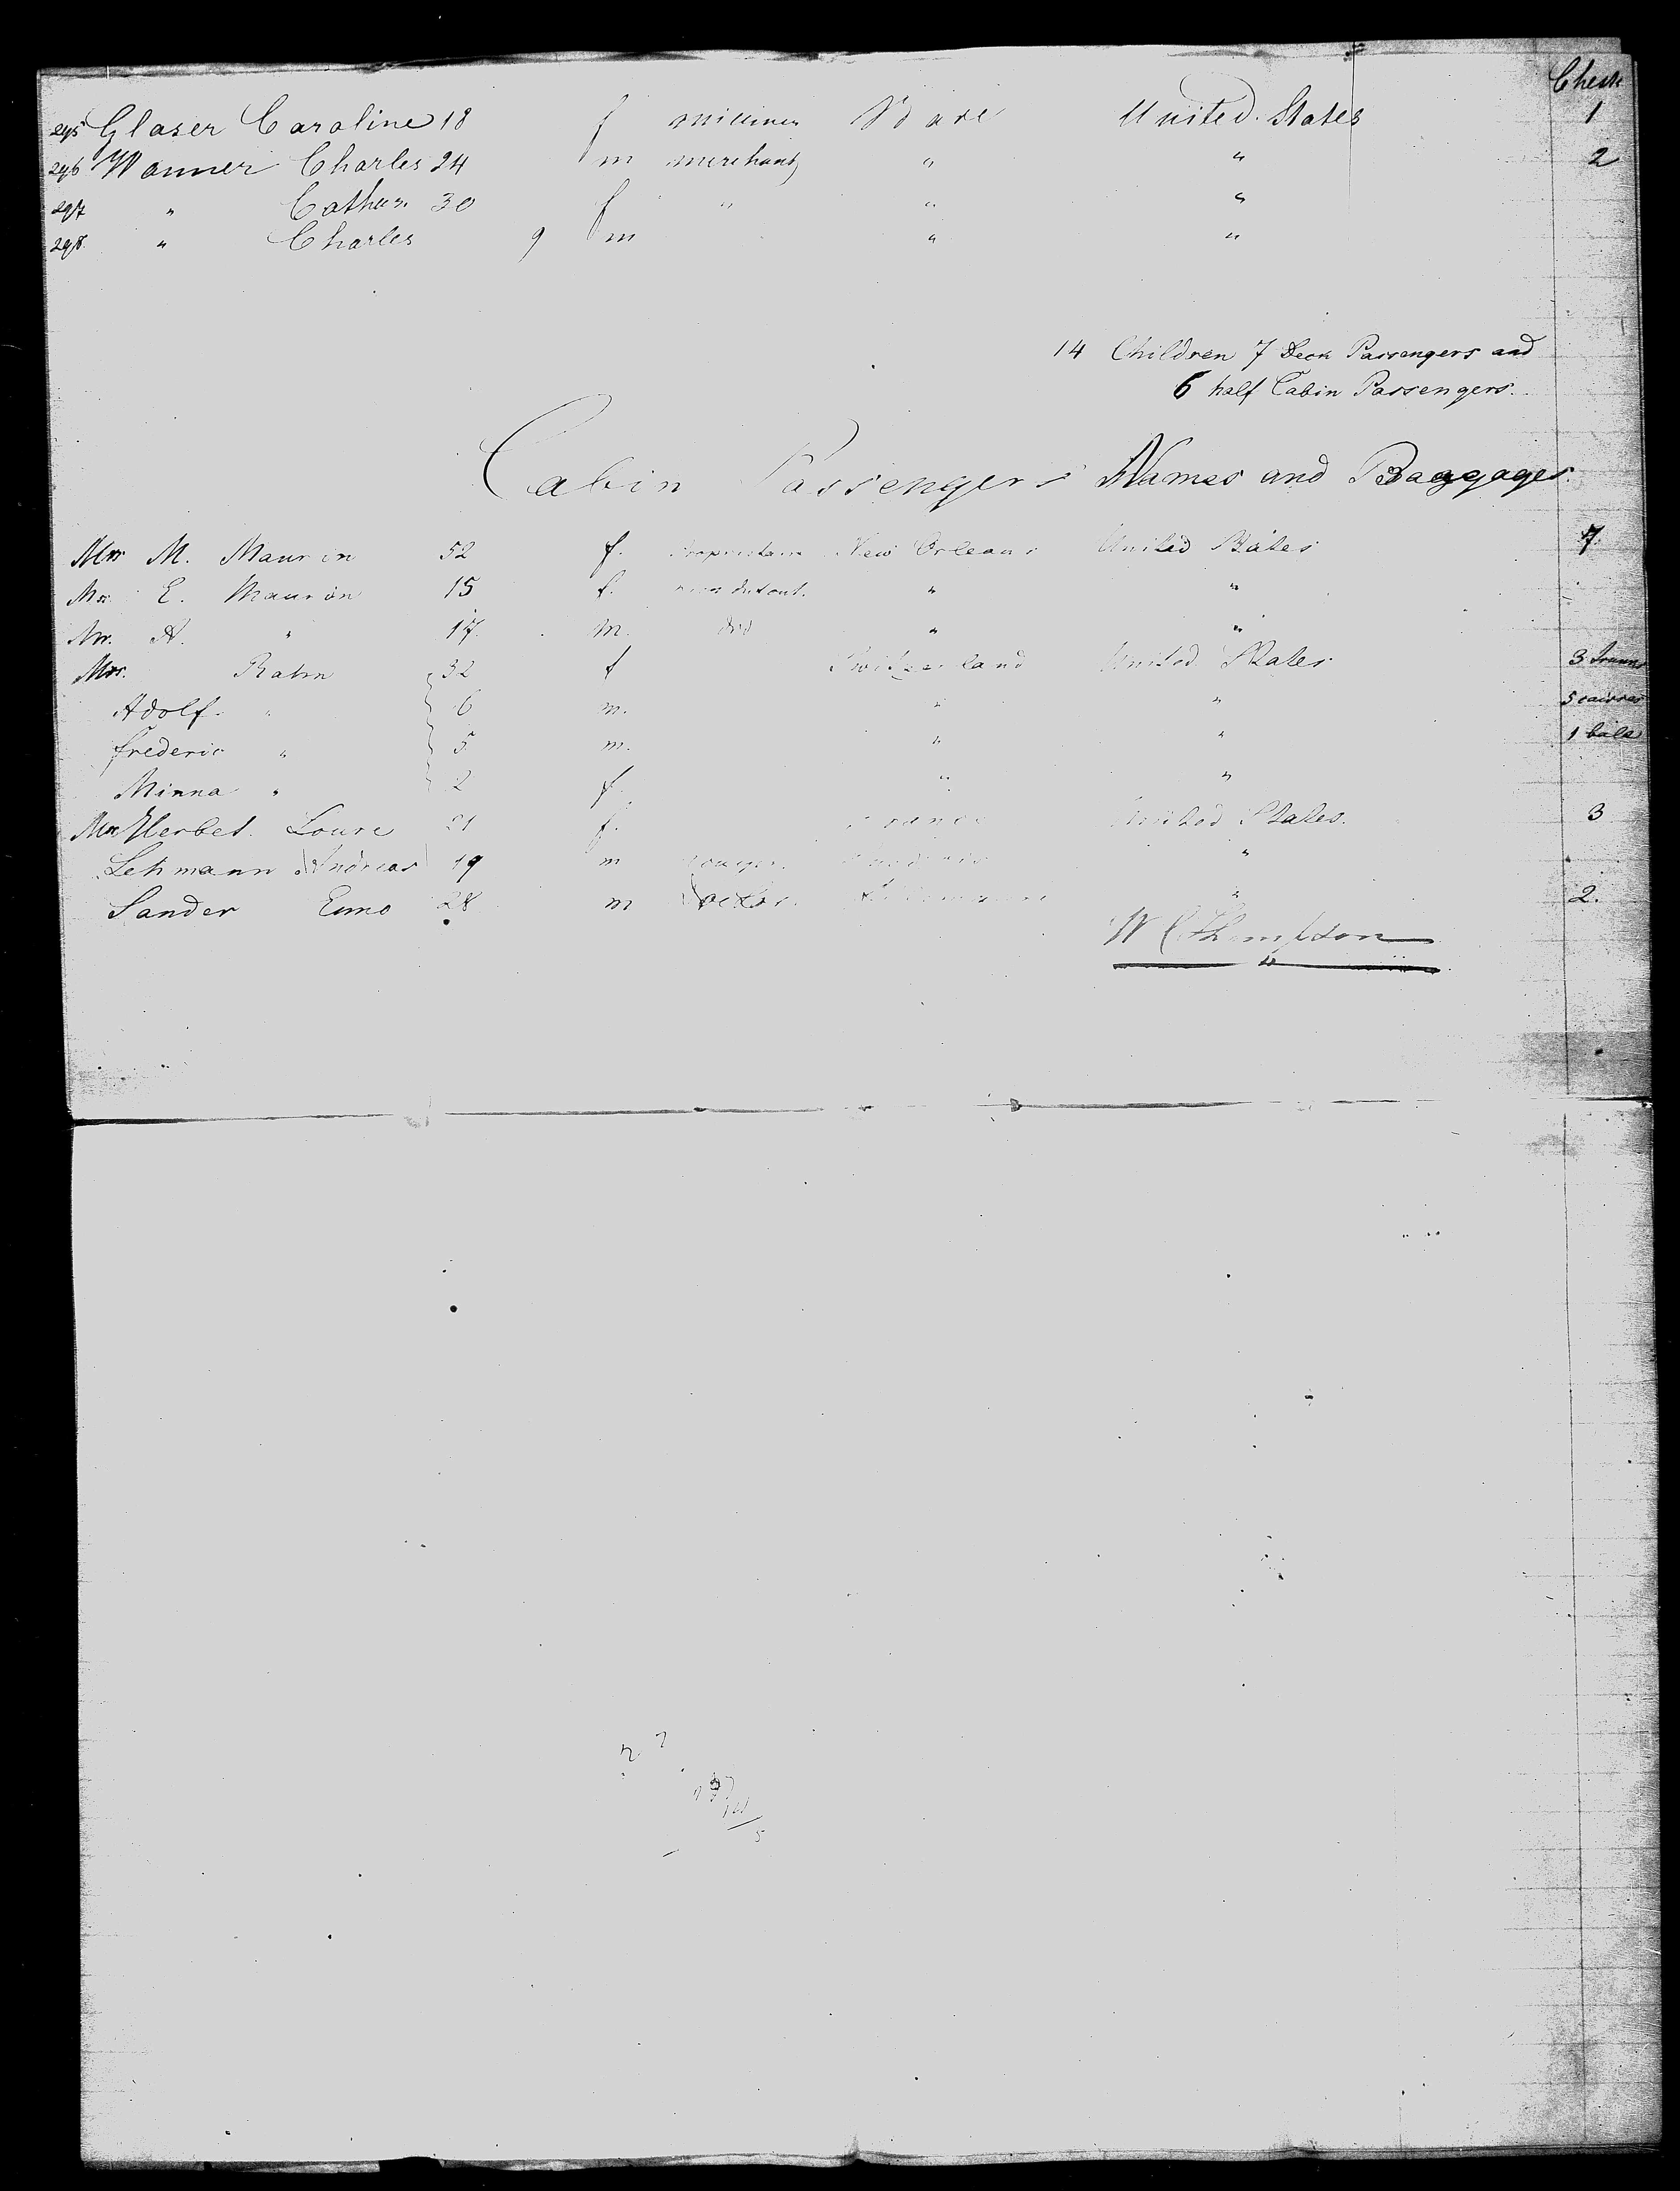 Chests
295 Glaser Caroline 18 f milliner United States 1
296 Wanner Charles 24 m merchant " " 2
297 " Cathar. 30 f " " "
298 " Charles 9 m " "
14 Children 7 Deck Passengers and
6 half Cabin Passengers.
Cabin Passengers Names and Baggages.
Mrs M. Maurin 52 f. New Orleans United States 7
E. Maurin 15 f. " "
Mr. A. " 17 m. " "
Mrs. Rahn 32 f Switzerland United States 3
Adolf " 6 m. " " 5 caisses
frederic " 5 m. " " 1 bale
Minna " 2 f. " "
Herbet. 21 f. France United States. 3
Lehmann Andreas 19 m "
Sander 28 m " 2.
W C Thompson